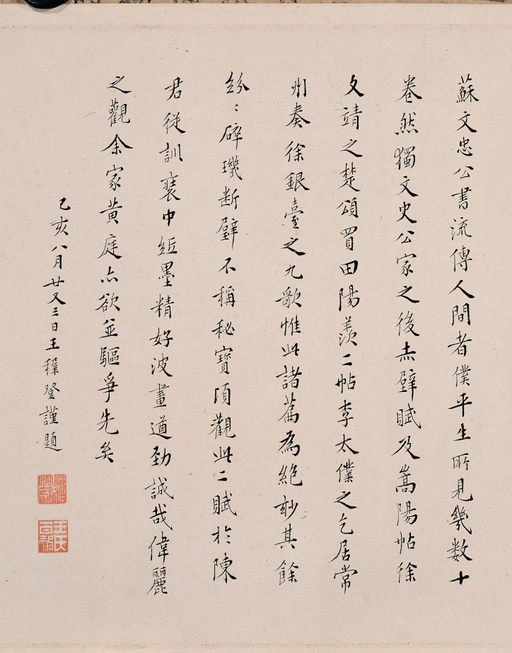 蘇文忠公書流傳人間者僕平生所見幾数十
卷然獨文史公家之後赤壁賦及嵩陽帖徐
文靖之楚頌買田陽羨二帖李太僕之乞居常
州奏徐銀臺之九歌惟此諸篇為絕妙其餘
紛〻碎璣断璧不稱秘寶頃觀此二賦於陳
君從訓褱中紙墨精好波畫遒勁誠哉偉麗
之觀余家黃庭亦欲並驅爭先矣
乙亥八月廿又三日王穉登謹題
王氏百穀